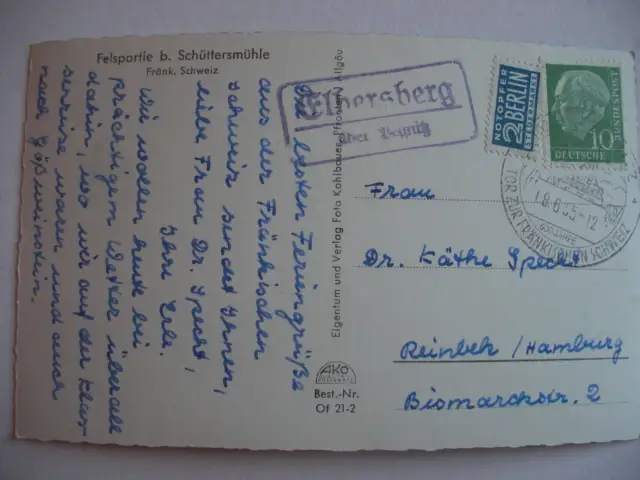 Felspartie b. Schüttersmühle
Fränk. Schweiz
Die besten Feriengrüße
aus der Fränkischen
Schweiz sendet Ihnen,
liebe Frau Dr. Specht,
Ihre Erle.
Wir wollen heute bei
prächtigem Wetter überall
dahin, wo wir auf der Klas-
senreise waren und auch
nach Gößweinstein.
Elbersberg
über Pegnitz
Eigentum und Verlag Foto Kohlbauer, Pfronten / Allgäu
AKO
Best.-Nr.
Of 21-2
NOTOPFER
2 BERLIN
STEUERMARKE
10
DEUTSCHE
BUNDESPOST
18.6.55-12
TOR ZUR FRÄNKISCHEN SCHWEIZ
Frau
Dr. Käthe Specht
Reinbek / Hamburg
Bismarckstr. 2